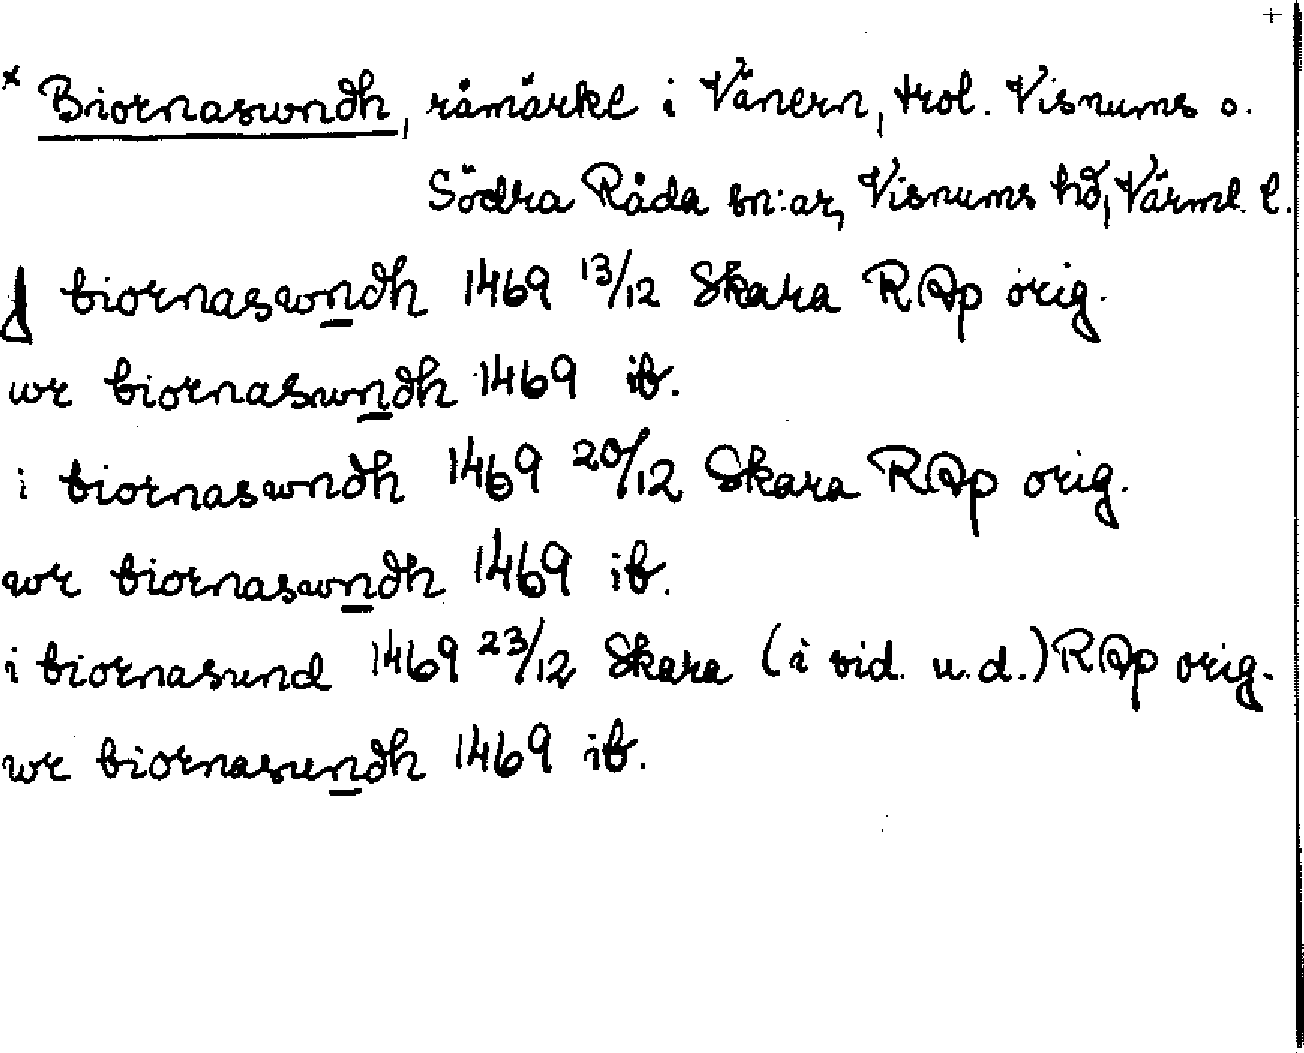 +
* Biornaswndh, råmärke i Vänern, trol. Visnums o.
Södra Råda sn:ar, Visnums hd, Värml. l.
J biornaswndh 1469 13/12 Skara RAp orig.
wr biornaswndh 1469 ib.
i biornaswndh 1469 20/12 Skara RAp orig.
wr biornaswndh 1469 ib.
i biornasund 1469 23/12 Skara (i vid. u.d.) RAp orig.
wr biornasundh 1469 ib.